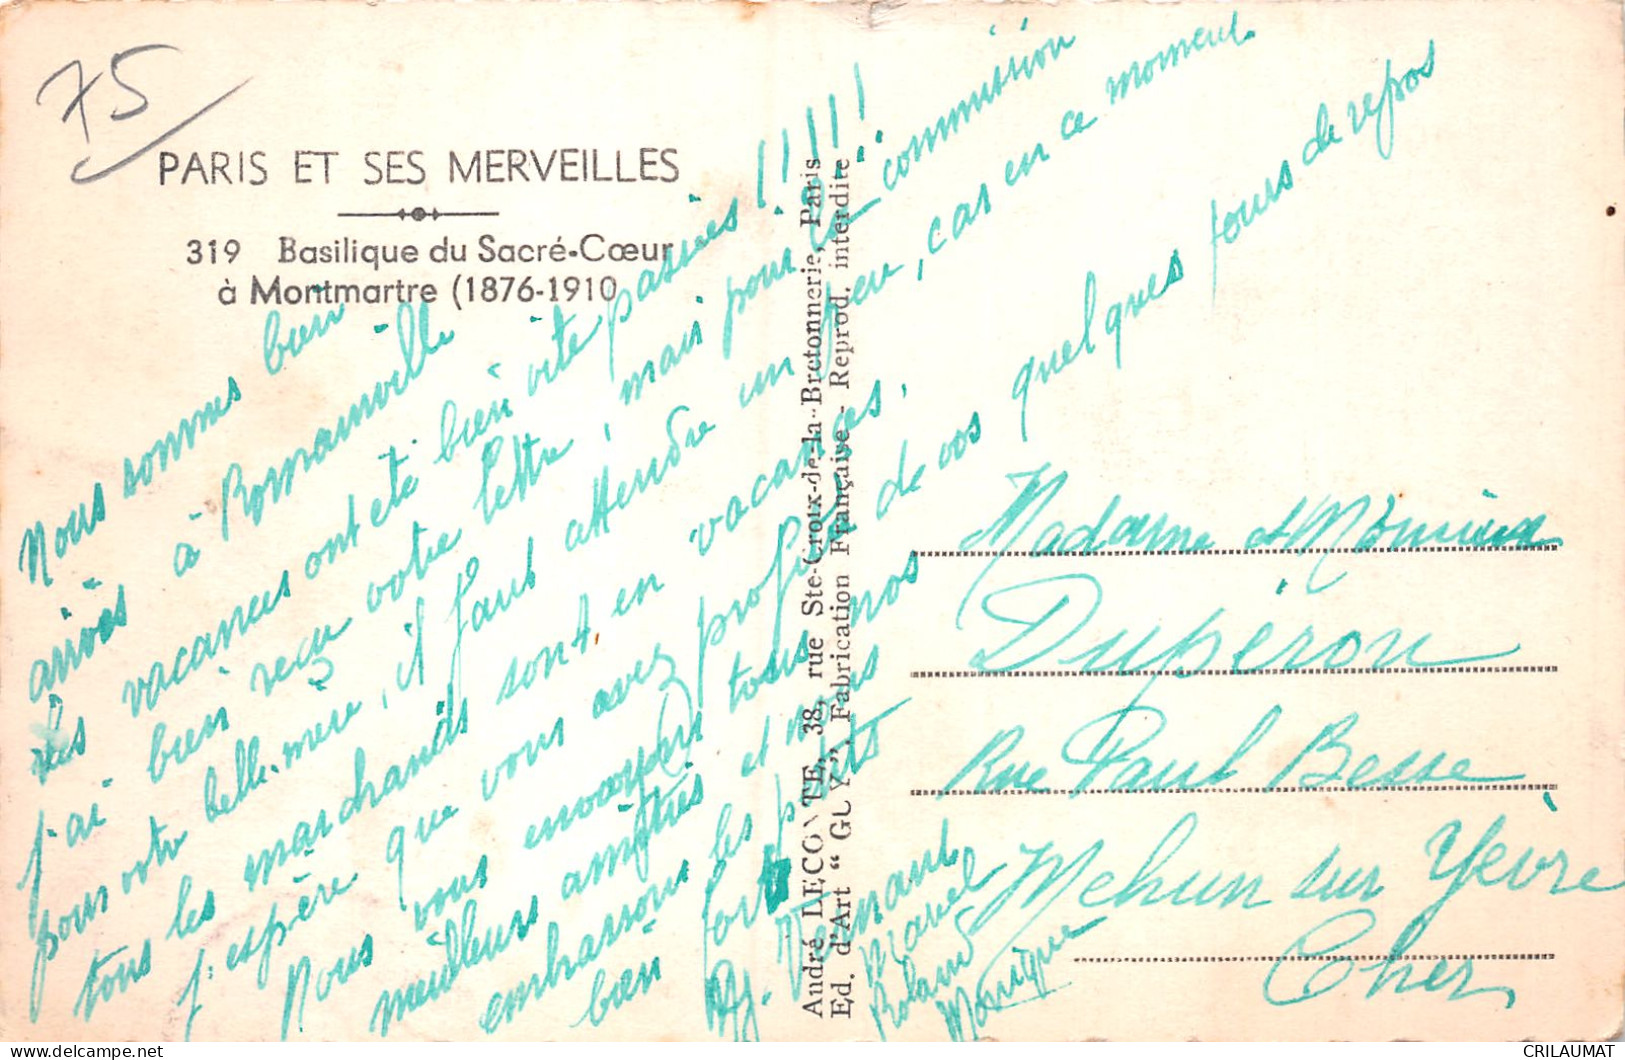 75
PARIS ET SES MERVEILLES
319 Basilique du Sacré-Cœur
à Montmartre (1876-1910
Nous sommes bien
arrivés à Romainville
les vacances ont été bien vite passées !!!!!
j'ai bien reçu votre lettre, mais pour la commission
pour votre belle-mère, il faut attendre un peu, car en ce moment
tous les marchands sont en vacances.
j'espère que vous avez profité de vos quelques jours de repos
Nous vous envoyons tous nos
meilleurs amitiés et nous
embrassons les petits
bien fort
Vernault
Marcel
Roland
Monique
André LECONTE, 38, rue Ste-Croix-de-la-Bretonnerie, Paris
Ed. d'Art “ GUY ”, Fabrication Française - Reprod. interdite
Madame et Monsieur
Dupéron
Rue Paul Besse
Mehun sur Yèvre
Cher
CRILAUMAT